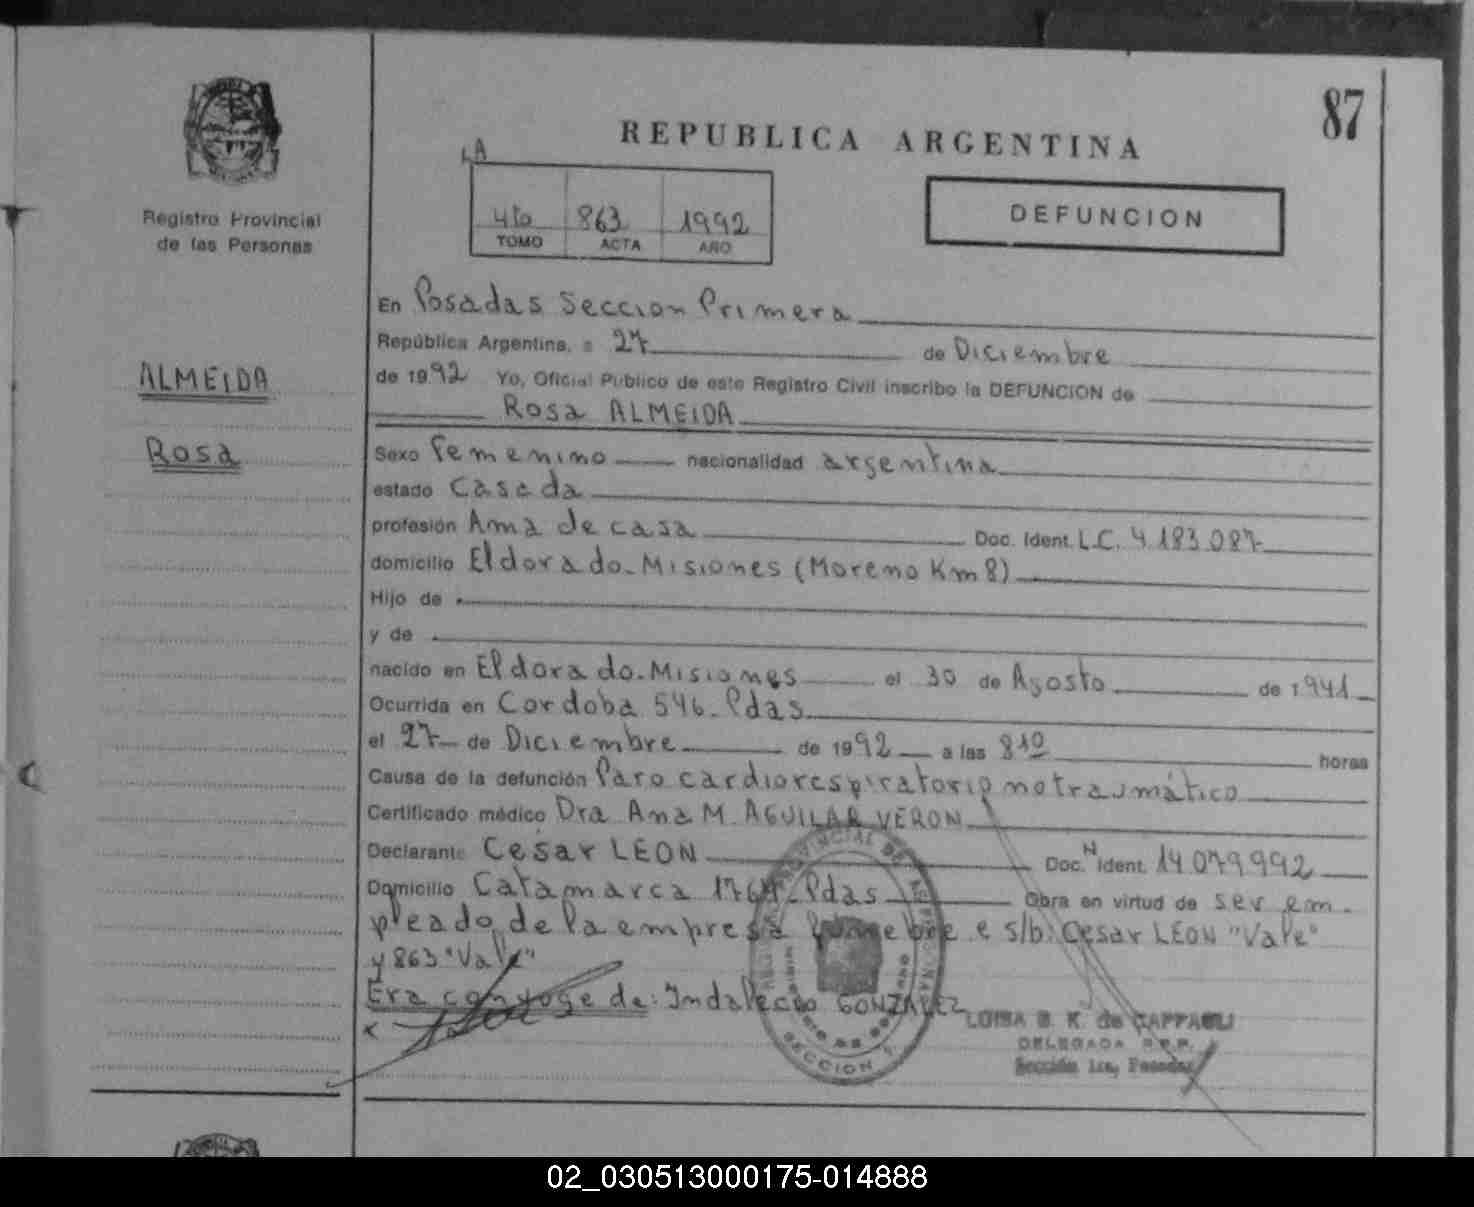 87
REPUBLICA ARGENTINA
LA
4to 863 1992
TOMO ACTA AÑO
DEFUNCION
Registro Provincial
de las Personas
ALMEIDA
Rosa
En Posadas Seccion Primera
República Argentina, a 27 de Diciembre
de 1992 Yo, Oficial Publico de este Registro Civil inscribo la DEFUNCION de
Rosa ALMEIDA
Sexo Femenino nacionalidad argentina
estado Casada
profesión Ama de casa Doc. Ident. L.C. 4.183.087
domicilio Eldorado-Misiones (Moreno Km 8)
Hijo de
y de
nacido en Eldorado-Misiones el 30 de Agosto de 1941
Ocurrida en Cordoba 546-Pdas
el 27 de Diciembre de 1992 a las 8 10 horas
Causa de la defunción Paro cardiorespiratorio no traumático
Certificado médico Dra Ana M. AGUILAR VERON
Declarante Cesar LEON Doc. N Ident. 14.079.992
Domicilio Catamarca 1764-Pdas Obra en virtud de ser em-
pleado de la empresa funebre e s/b: Cesar LEON "Vale"
y 863 "Vale"
Era conyuge de: Indalecio GONZALEZ
x
REGISTRO PROVINCIAL DE LAS PERSONAS
SECCION 1
LUISA B. K. de CAPPAULI
DELEGADA R.P.P.
Sección 1ra, Posadas
02_030513000175-014888